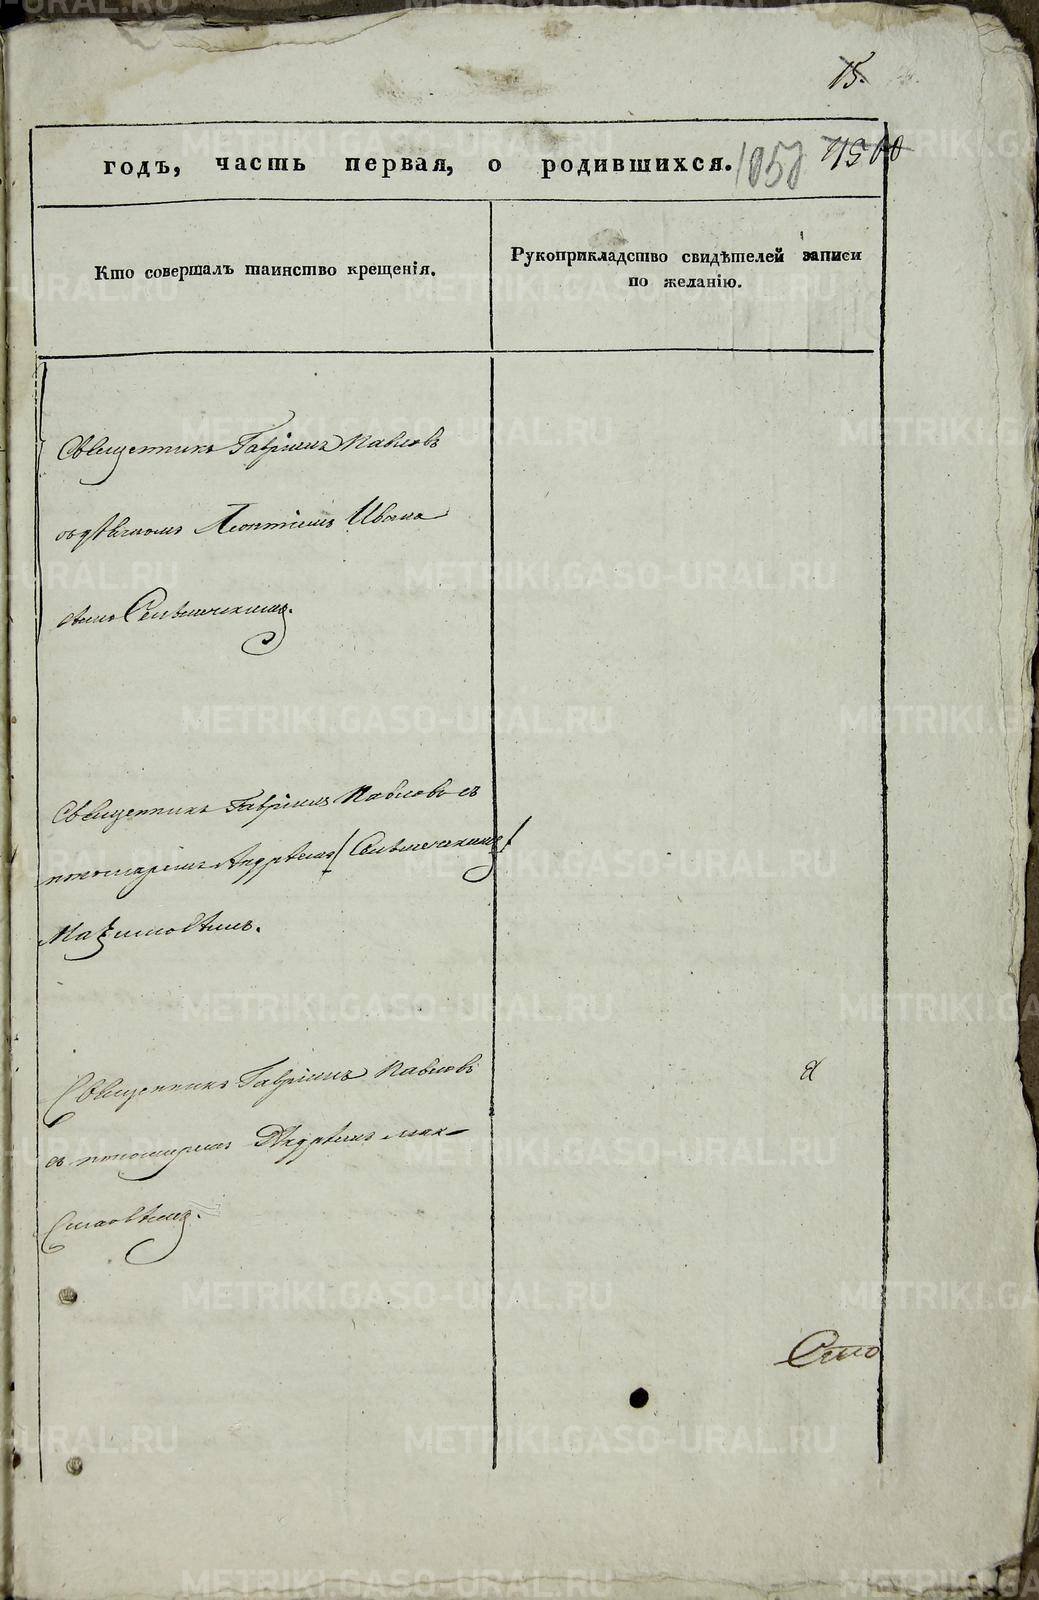 15.
годъ, часть первая, о родившихся. 1050 1500
Кто совершалъ таинство крещенія.
Рукоприкладство свидѣтелей записи
по желанію.
Священникъ Гавріилъ Павловъ
Леонтіемъ Ивано
вымъ
Священникъ Гавріилъ Павловъ съ
пономаремъ Андрѣемъ
Максимовымъ.
Священникъ Гавріилъ Павловъ
съ пономаремъ Андрѣемъ Мак-
симовымъ.
METRIKI.GASO-URAL.RU